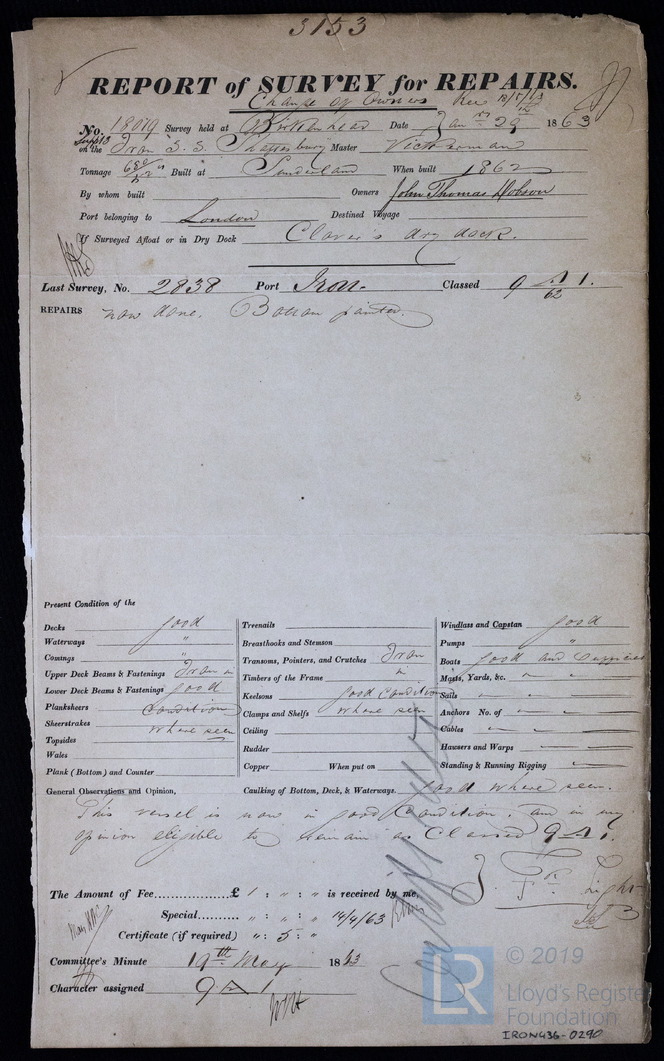 3153
REPORT of SURVEY for REPAIRS.
Change of Owners Rec 18/5/63
No. 18079 Survey held at Birkenhead Date Jany 29th 1863
on the Iron S.S. Shaftesbury Master
Tonnage 680 Built at Sunderland When built 1862
By whom built Owners John Thomas Hobson
Port belonging to London Destined Voyage
If Surveyed Afloat or in Dry Dock Clover's dry dock.
Last Survey, No. 2838 Port Iron. Classed 9 A 1.
62
REPAIRS now done. Bottom painted.
Present Condition of the
Decks good
Waterways "
Comings "
Upper Deck Beams & Fastenings Iron in
Lower Deck Beams & Fastenings good
Planksheers Condition
Sheerstrakes where seen
Topsides
Wales
Plank (Bottom) and Counter
Treenails
Breasthooks and Stemson
Transoms, Pointers, and Crutches Iron
Timbers of the Frame in
Keelsons good Condition
Clamps and Shelfs where seen
Ceiling
Rudder
Copper When put on
Windlass and Capstan good
Pumps "
Boats good and
Masts, Yards, &c. "
Sails "
Anchors No. of "
Cables "
Hawsers and Warps
Standing & Running Rigging
General Observations and Opinion, Caulking of Bottom, Deck, & Waterways. good where seen.
This vessel is now in good Condition, and in my
opinion eligible to remain as Classed 9 A 1.
The Amount of Fee.............. £ 1 : " : " is received by me,
Special.......... " : " : " 14/4/63
Certificate (if required) " : 5 : "
Committee's Minute 19th May 1863
Character assigned 9 A 1
© 2019
Lloyd's Register
Foundation
IRON436-0290